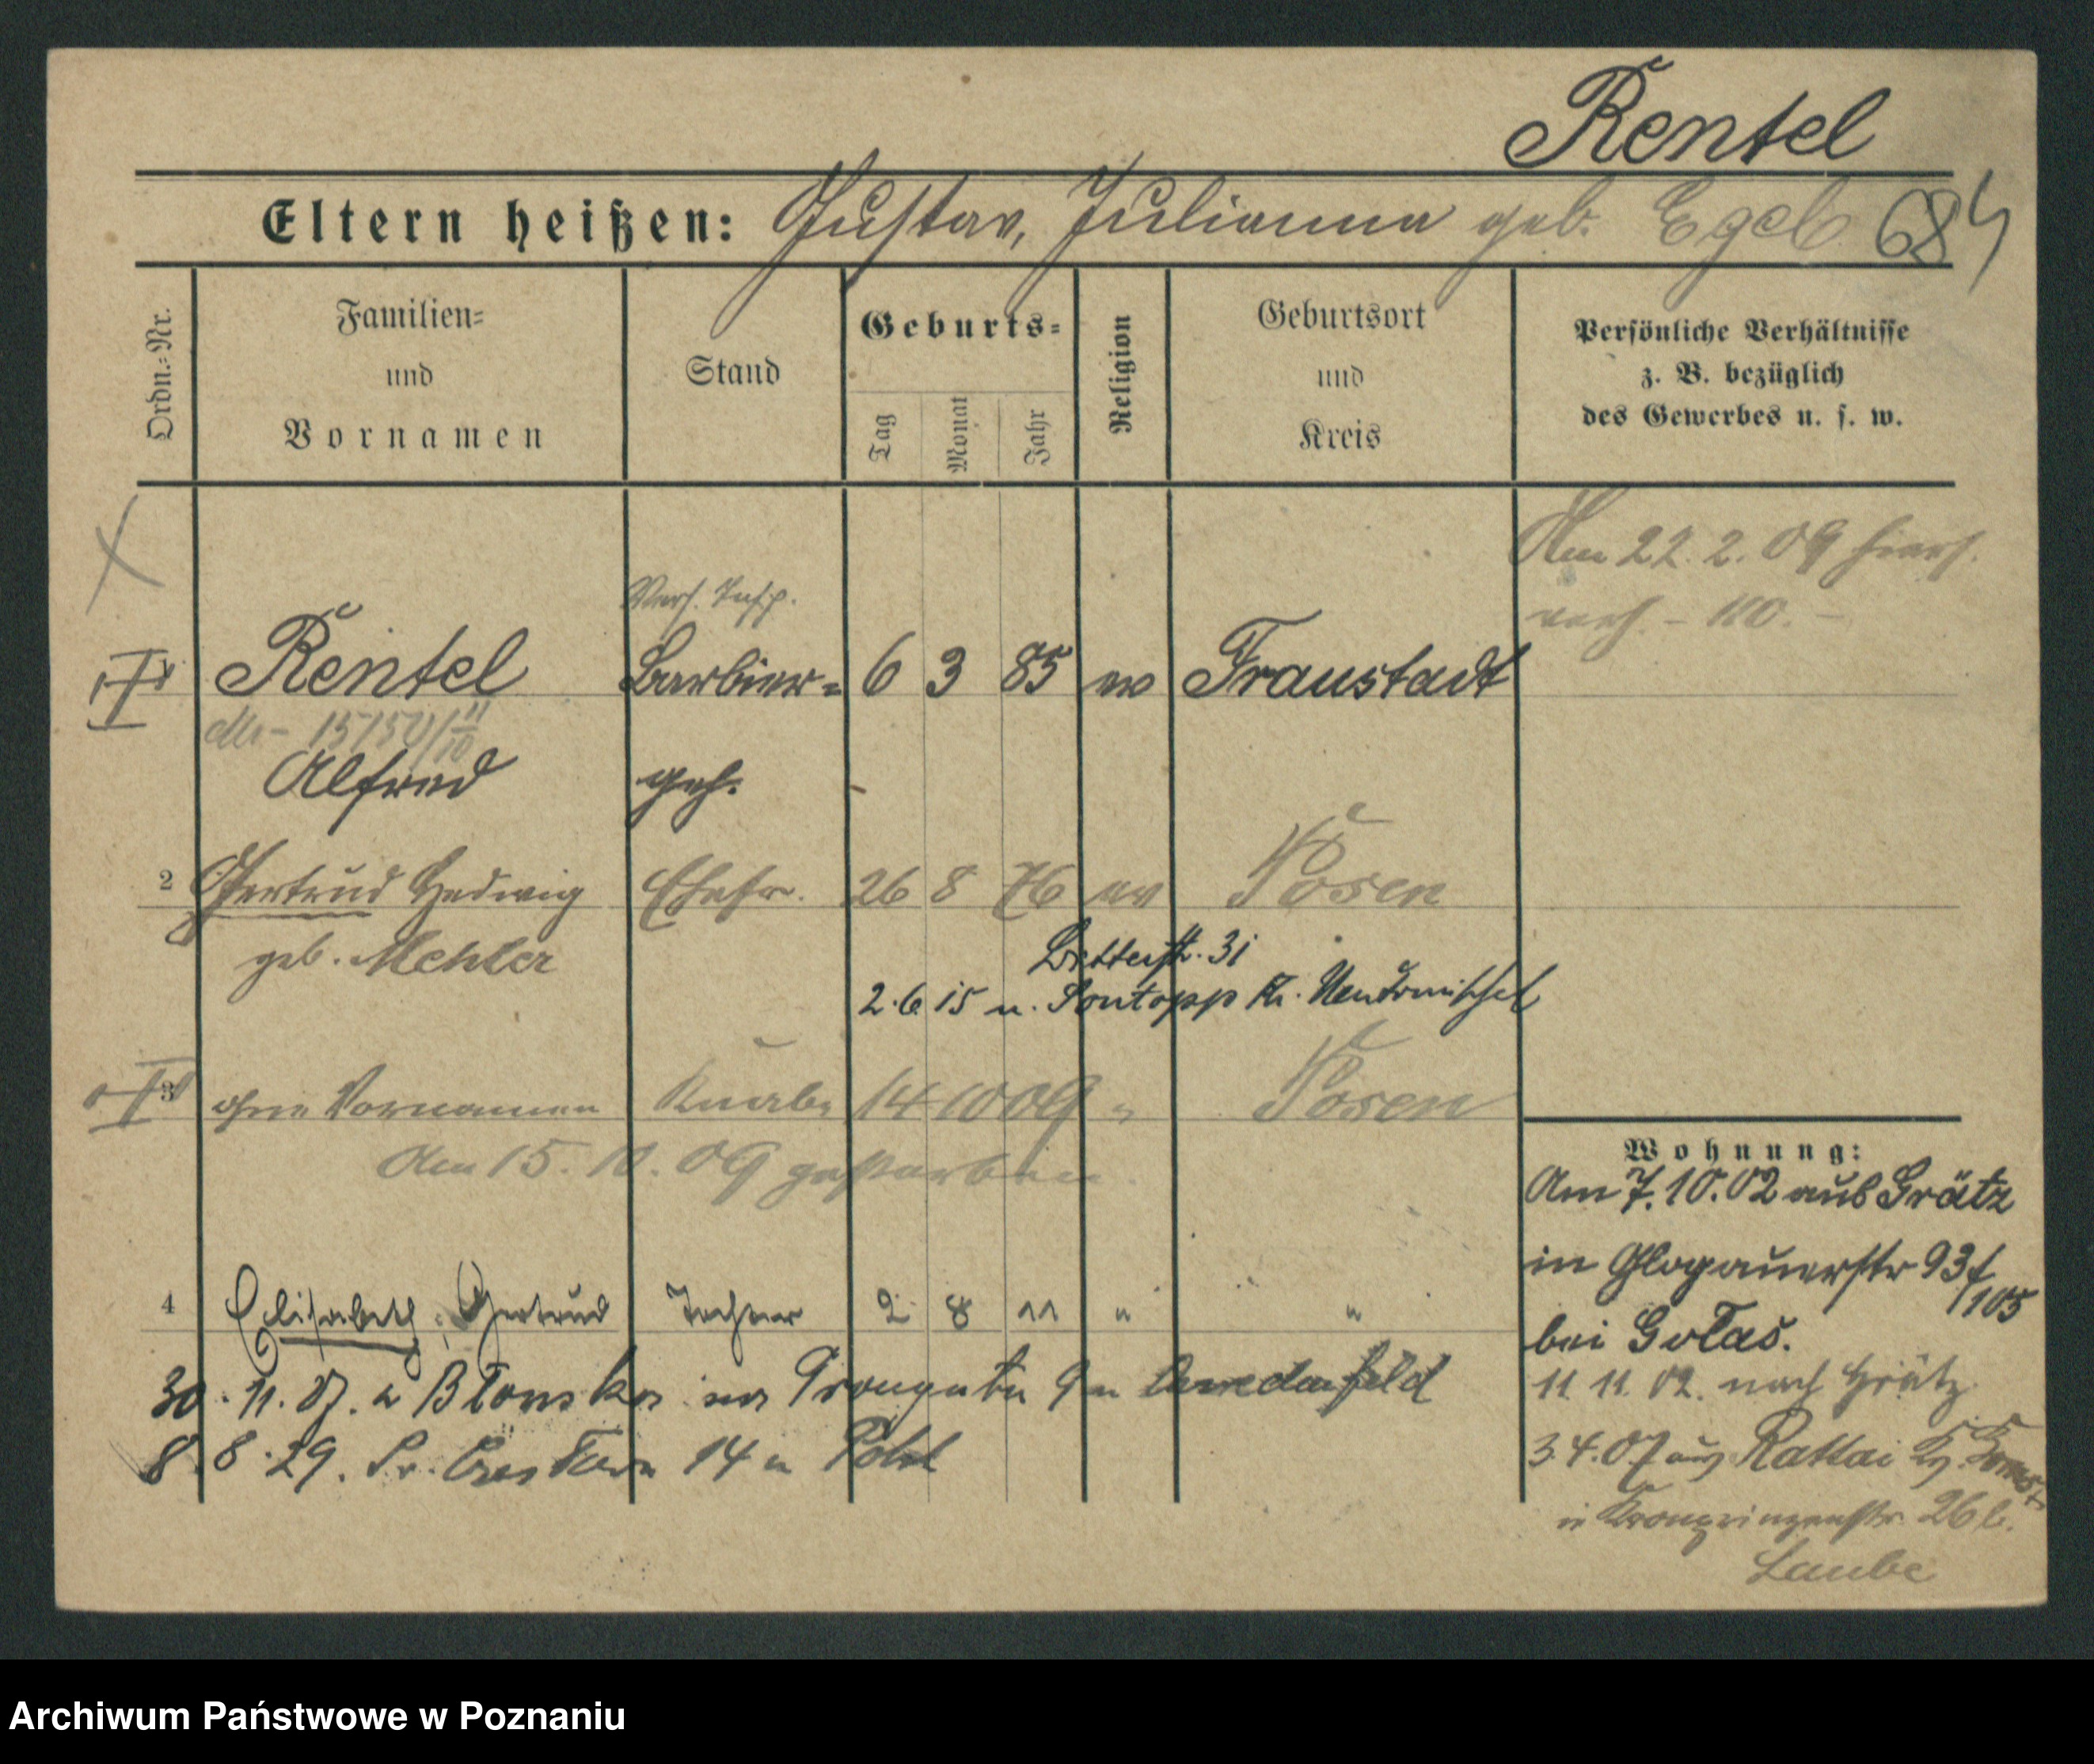 Rentel
Eltern heißen: Gustav, Julianna geb. Egeb 684
Ordn.=Nr.
Familien=
und
Vornamen
Stand
Geburts=
Tag
Monat
Jahr
Religion
Geburtsort
und
Kreis
Persönliche Verhältnisse
z. B. bezüglich
des Gewerbes u. s. w.
Am 22. 2. 09 hiers.
verh. -
Vers. Insp.
Rentel Barbier= 6 3 85 ev Fraustadt
Alfred geh.
2 Gertrud Hedwig Ehefr. 26 8 76 ev Posen
geb. Mehler
31
2. 6 15 n. Sontopp Kr. Neutomischel
3 ohne Vornamen Knabe 14 10 09 " Posen
Am 15. 10. 09 gestorben.
4 Elisabeth Gertrud Tochter 2 8 11 " "
30. 11. 07.
8. 8. 29. 14
Wohnung:
Am 7. 10. 02 aus Grätz
in Glogauerstr 93 f
/105
bei Golas.
11. 11. 02. nach Grätz.
3. 4. 07 aus Rattai
in Kronprinzenstr. 26 b.
Laube
Archiwum Państwowe w Poznaniu